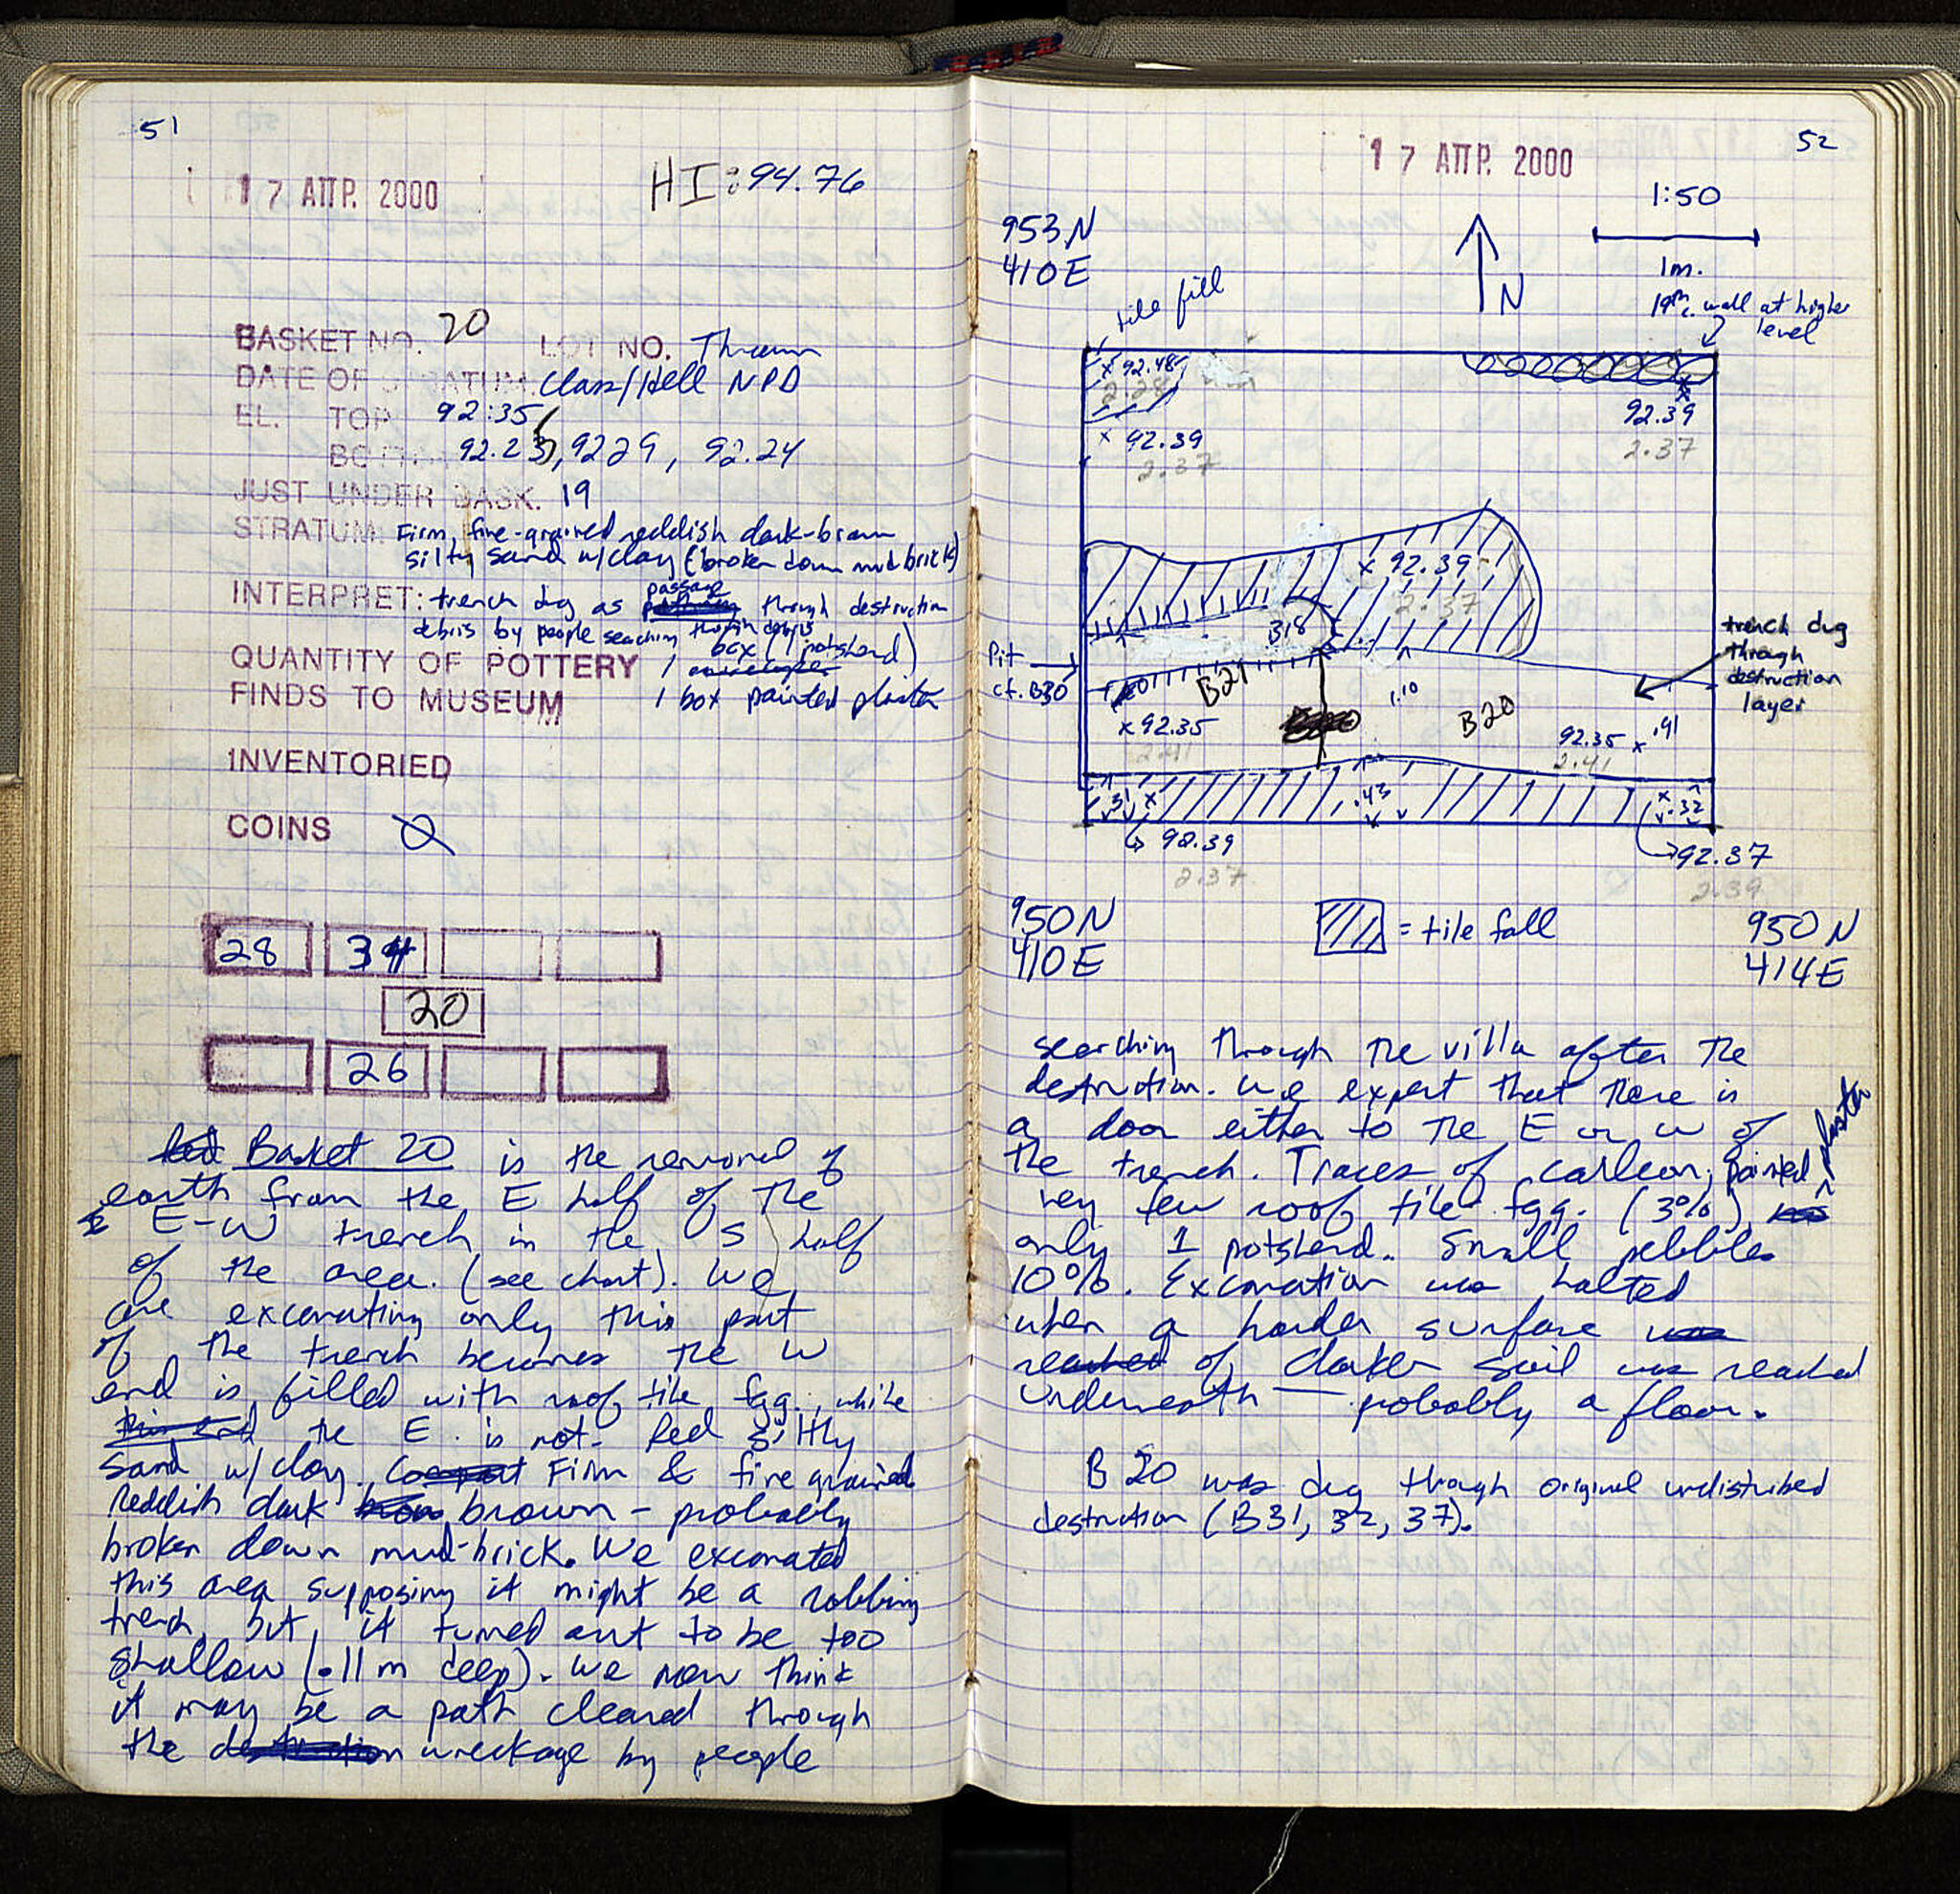 51
17 ΑΠΡ. 2000
HI: 94.76
BASKET NO. 20 LOT NO. Thrown
DATE OF STRATUM: Class/Hell NPD
EL. TOP 92.35
BOTT. 92.23, 9229, 92.24
JUST UNDER BASK. 19
STRATUM: Firm, fine-grained reddish dark-brown
silty sand w/clay (broken down mud brick)
INTERPRET: trench dug as passage through destruction
debris by people searching through debris
QUANTITY OF POTTERY 1 box (1 potsherd)
FINDS TO MUSEUM 1 box painted plaster
INVENTORIED
COINS Ø
28 34
20
26
Basket 20 is the removal of
earth from the E half of the
E-W trench in the S half
of the area. (see chart). We
are excavating only this part
of the trench because the W
end is filled with roof tile fgg. while
the E is not. Red silty
sand w/ clay. Firm & fine grained
Reddish dark brown - probably
broken down mud-brick. We excavated
this area supposing it might be a robbing
trench, but it turned out to be too
shallow (.11m deep). We now think
it may be a path cleared through
the wreckage by people
52
17 ΑΠΡ. 2000
1:50
1m.
N
953N
410E
tile fill
19th c. wall at higher
level
x 92.48
2.28
x 92.39
2.37
92.39
2.37
x 92.39
2.37
B18
Pit
cf. B30
B21
1.10
B20
trench dug
through
destruction
layer
x 92.35
2.41
92.35 x .91
2.41
.31 x
.43
x .32
92.39
2.37
92.37
2.39
950N
410E
= tile fall
950N
414E
searching through the villa after the
destruction. We expect that there is
a door either to the E or W of
the trench. Traces of carbon, painted plaster
very few roof tile fgg. (3%),
only 1 potsherd. Small pebbles
10%. Excavation was halted
when a harder surface
of darker soil was reached
underneath — probably a floor.
B 20 was dug through original undisturbed
destruction (B31, 32, 37).